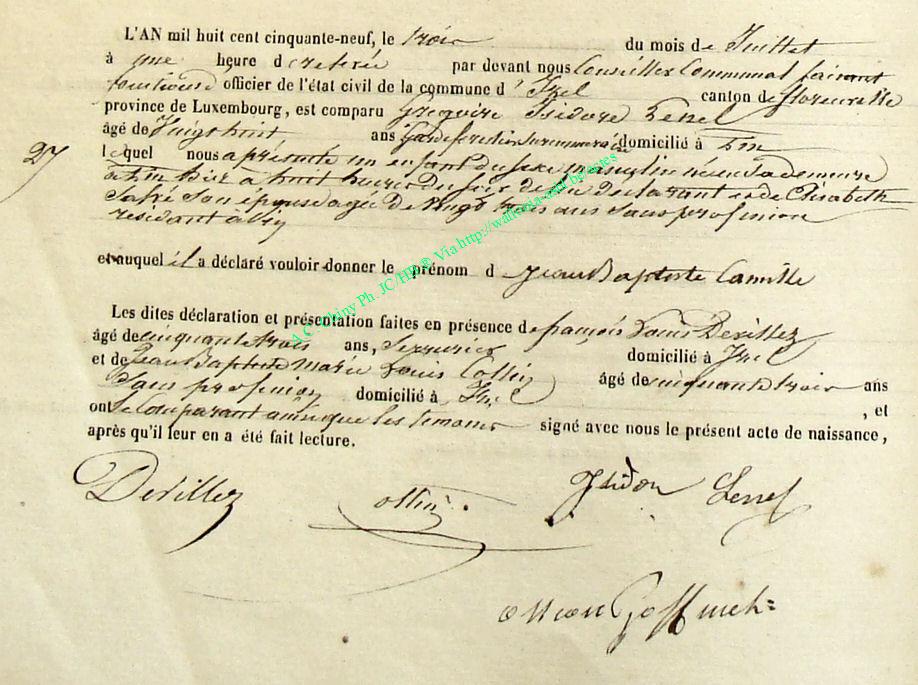 L'AN mil huit cent cinquante-neuf, le trois du mois de Juillet
à une heure d relevée par devant nous Conseiller Communal faisant
fonctions d officier de l'état civil de la commune d' Izel canton de Florenville
province de Luxembourg, est comparu Grégoire Isidore Lenel
âgé de Vingt huit ans Garde forestier surnuméraire domicilié à
27
lequel nous a présenté un enfant du sexe masculin né en sa demeure
hier à huit heures du soir de lui Déclarant et de Elisabeth
son épouse agée de vingt trois ans sans profession
résidant à
et auquel il a déclaré vouloir donner le prénom d Jean Baptiste Camille
Les dites déclaration et présentation faites en présence de françois Louis Devillez
âgé de cinquante trois ans, Serrurier domicilié à Izel
et de Jean Baptiste Marie Louis Collin âgé de cinquante trois ans
Sans profession domicilié à Izel , et
ont le Comparant ainsi que les témoins signé avec nous le présent acte de naissance,
après qu'il leur en a été fait lecture.
Devillez Collin Isidore Lenel
Goffinet
A.C. Chiny Ph. JC/HB® Via http://wallonia-asbl.be/actes